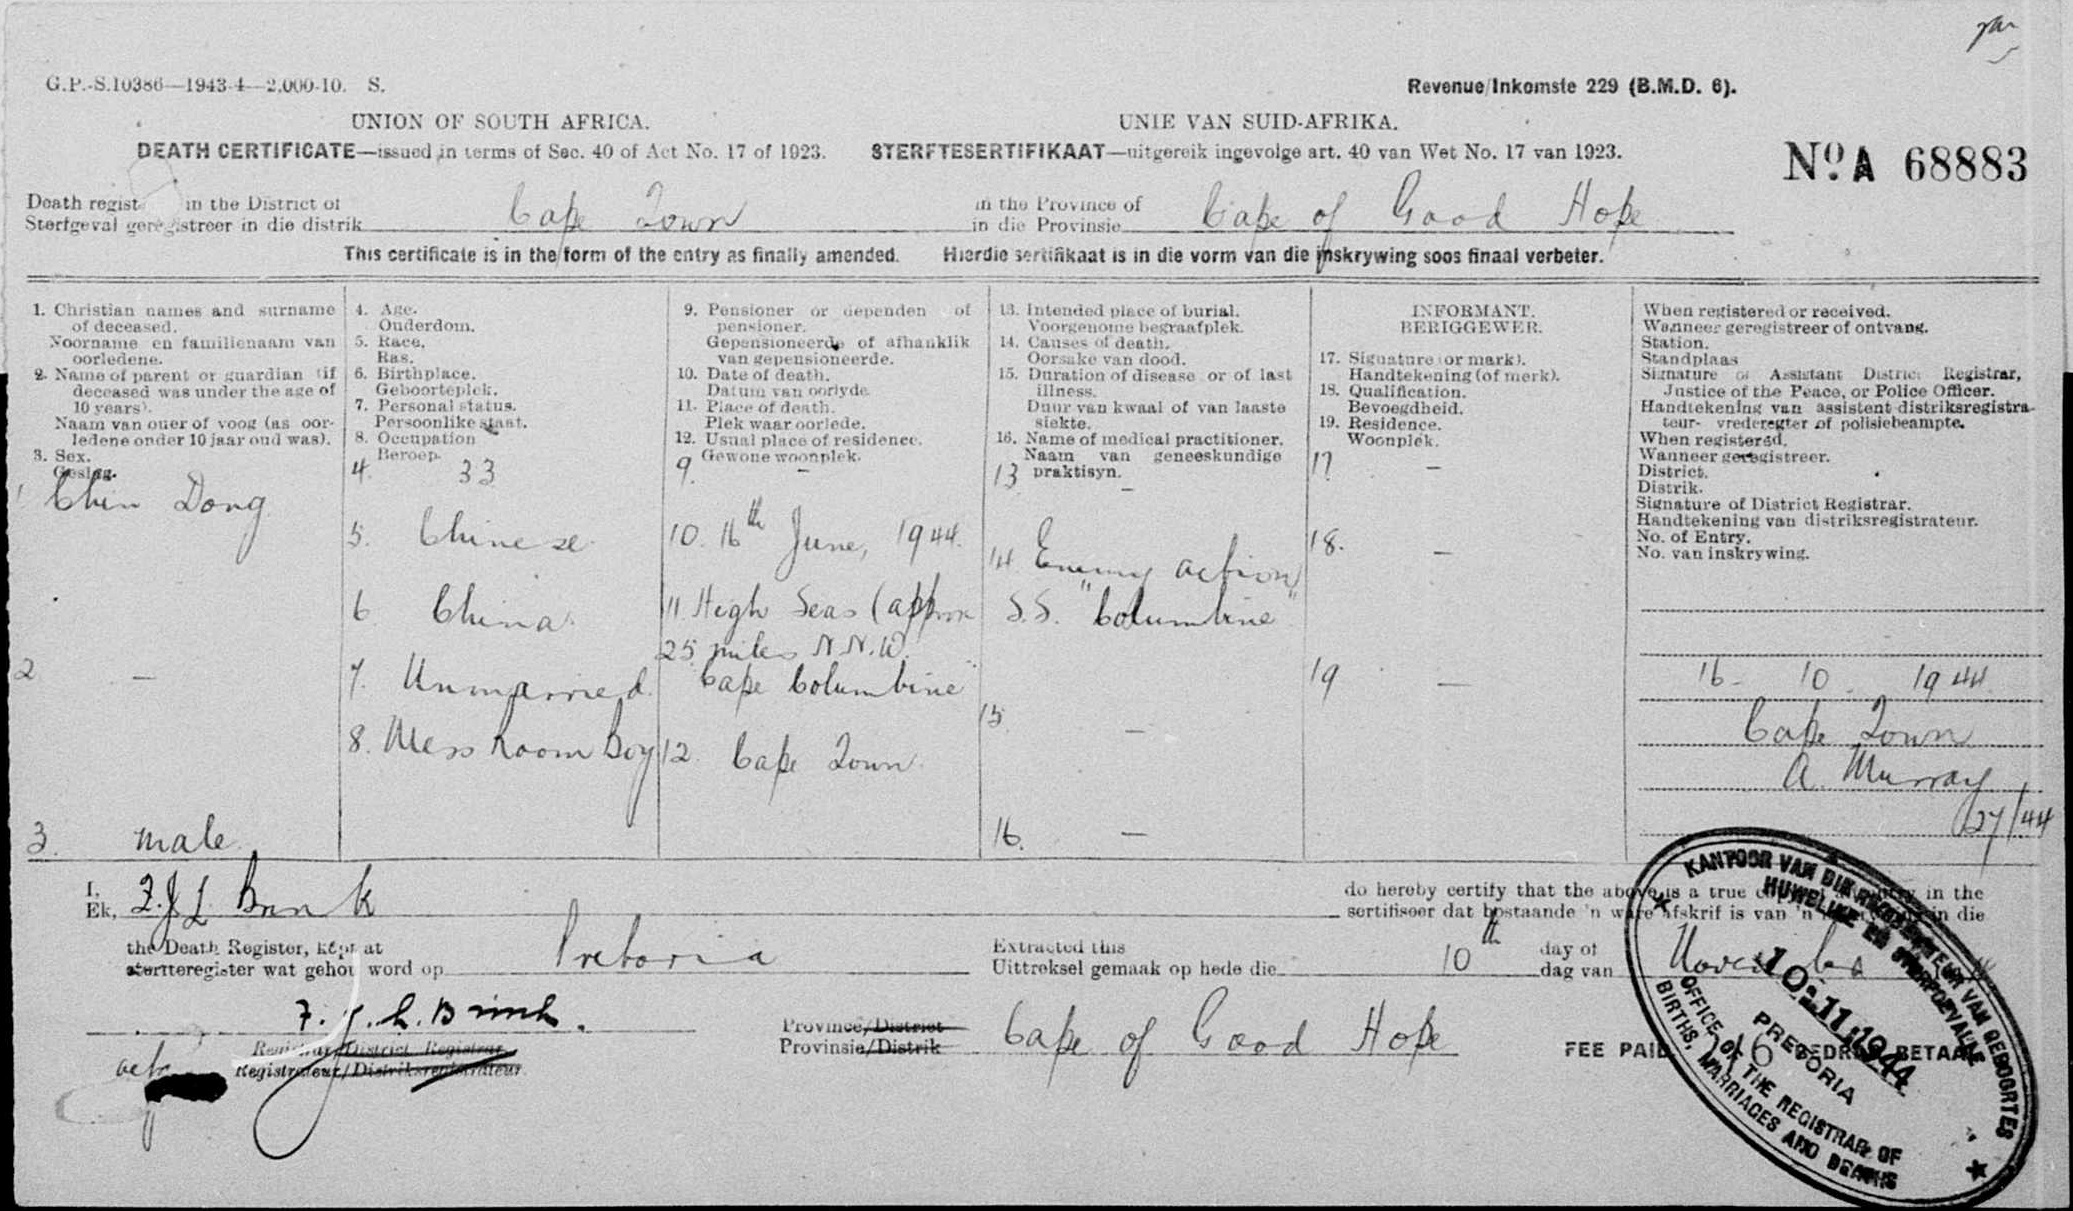 G.P.-S.10386—1943-4—2,000-10. S.
Revenue/Inkomste 229 (B.M.D. 6).
UNION OF SOUTH AFRICA.
UNIE VAN SUID-AFRIKA.
DEATH CERTIFICATE—issued in terms of Sec. 40 of Act No. 17 of 1923.
STERFTESERTIFIKAAT—uitgereik ingevolge art. 40 van Wet No. 17 van 1923.
No. A 68883
Death regist in the District of
Sterfgeval geregistreer in die distrik
Cape Town
in the Province of
in die Provinsie
Cape of Good Hope
This certificate is in the form of the entry as finally amended.
Hierdie sertifikaat is in die vorm van die inskrywing soos finaal verbeter.
1. Christian names and surname
of deceased.
Noorname en familienaam van
oorledene.
2. Name of parent or guardian (if
deceased was under the age of
10 years).
Naam van ouer of voog (as oor-
ledene onder 10 jaar oud was).
3. Sex.
Geslag.
1 Chin Dong
2 —
3. male
4. Age.
Ouderdom.
5. Race.
Ras.
6. Birthplace.
Geboorteplek.
7. Personal status.
Persoonlike staat.
8. Occupation
Beroep.
4. 33
5. Chinese
6 China
7. Unmarried
8. Mess Room Boy
9. Pensioner or dependen of
pensioner.
Gepensioneerde of afhanklik
van gepensioneerde.
10. Date of death.
Datum van oorlyde.
11. Place of death.
Plek waar oorlede.
12. Usual place of residence.
Gewone woonplek.
9. —
10. 16th June, 1944.
11 High Seas (approx
25 miles N.N.W.
Cape Columbine
12. Cape Town
13. Intended place of burial.
Voorgenome begraafplek.
14. Causes of death.
Oorsake van dood.
15. Duration of disease or of last
illness.
Duur van kwaal of van laaste
siekte.
16. Name of medical practitioner.
Naam van geneeskundige
praktisyn.
13 —
14 Enemy action
S.S. "Columbine"
15 —
16. —
INFORMANT.
BERIGGEWER.
17. Signature (or mark).
Handtekening (of merk).
18. Qualification.
Bevoegdheid.
19. Residence.
Woonplek.
17 —
18. —
19 —
When registered or received.
Wanneer geregistreer of ontvang.
Station.
Standplaas
Signature of Assistant District Registrar,
Justice of the Peace, or Police Officer.
Handtekening van assistent-distriksregistra-
teur- vrederegter of polisiebeampte.
When registered.
Wanneer geregistreer.
District.
Distrik.
Signature of District Registrar.
Handtekening van distriksregistrateur.
No. of Entry.
No. van inskrywing.
16- 10. 1944
Cape Town
A. Murray
27/44
I,
Ek,
F.J.L. Brink
do hereby certify that the above is a true in the
sertifiseer dat bostaande 'n ware afskrif is van 'n in die
the Death Register, kept at
sterfteregister wat gehou word op
Pretoria
Extracted this
Uittreksel gemaak op hede die
10th
day of
dag van
F. J. L. Brink.
Registrar/District Registrar
Registrateur/Distriksregistrateur.
Province/District
Provinsie/Distrik
Cape of Good Hope
FEE PAID
BEDRAG BETAAL
KANTOOR VAN DIE REGISTRATEUR VAN GEBOORTES
HUWELIKE EN STERFGEVALLE
10.11.1944
PRETORIA
OFFICE OF THE REGISTRAR OF
BIRTHS, MARRIAGES AND DEATHS